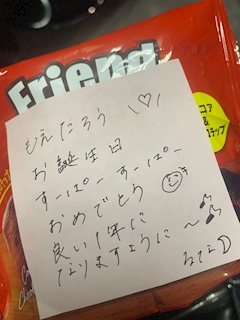 Friend
もえたろう
お誕生日
すーぱーすーぱー
おめでとう
良い1年に
なりますように〜
ココア
&